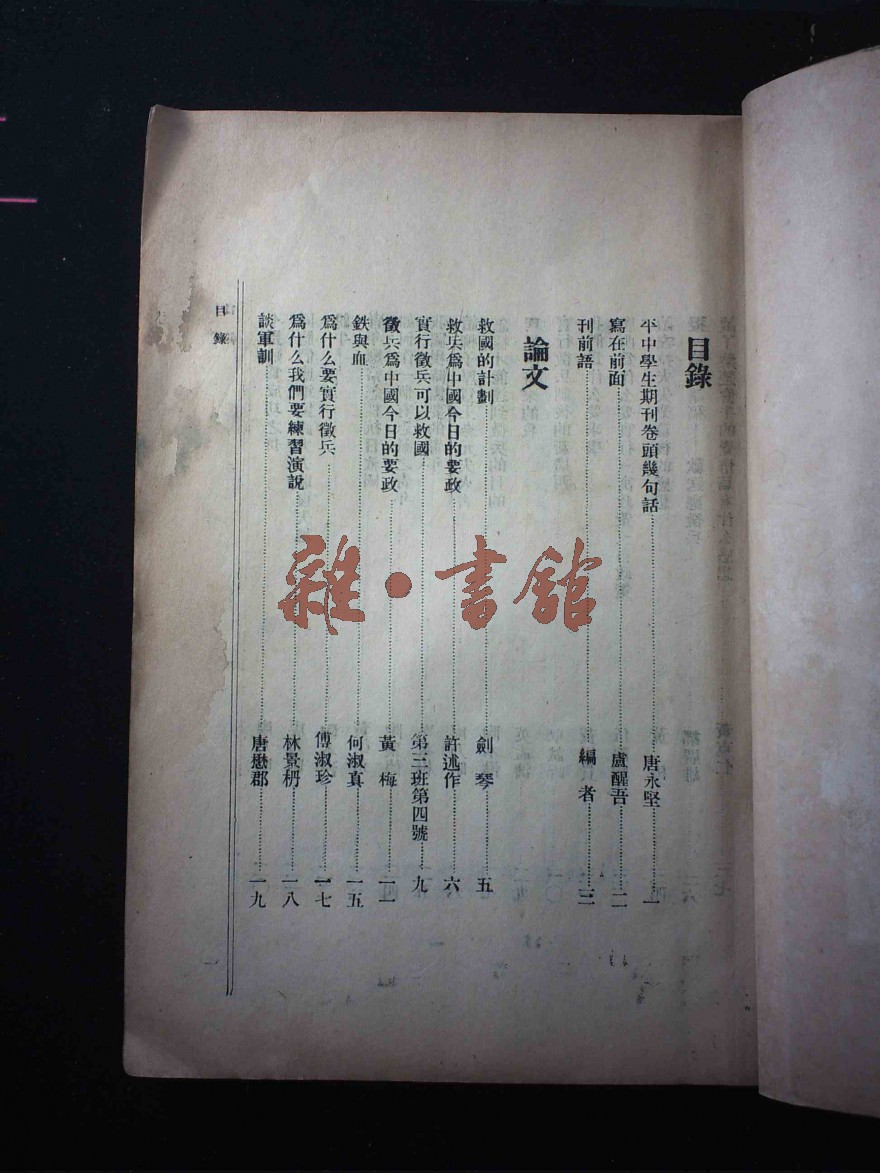 目錄
平中學生期刊卷頭幾句話……唐永堅……一
寫在前面……盧醒吾……二
刊前語……編者……三
論文
救國的計劃……劍琴……五
救兵爲中國今日的要政……許述作……六
實行徵兵可以救國……第三班第四號……九
徵兵爲中國今日的要政……黃梅……一一
鉄與血……何淑真……一五
爲什么要實行徵兵……傅淑珍……一七
爲什么我們要練習演說……林景枬……一八
談軍訓……唐懋郡……一九
目錄
一
雜·書館